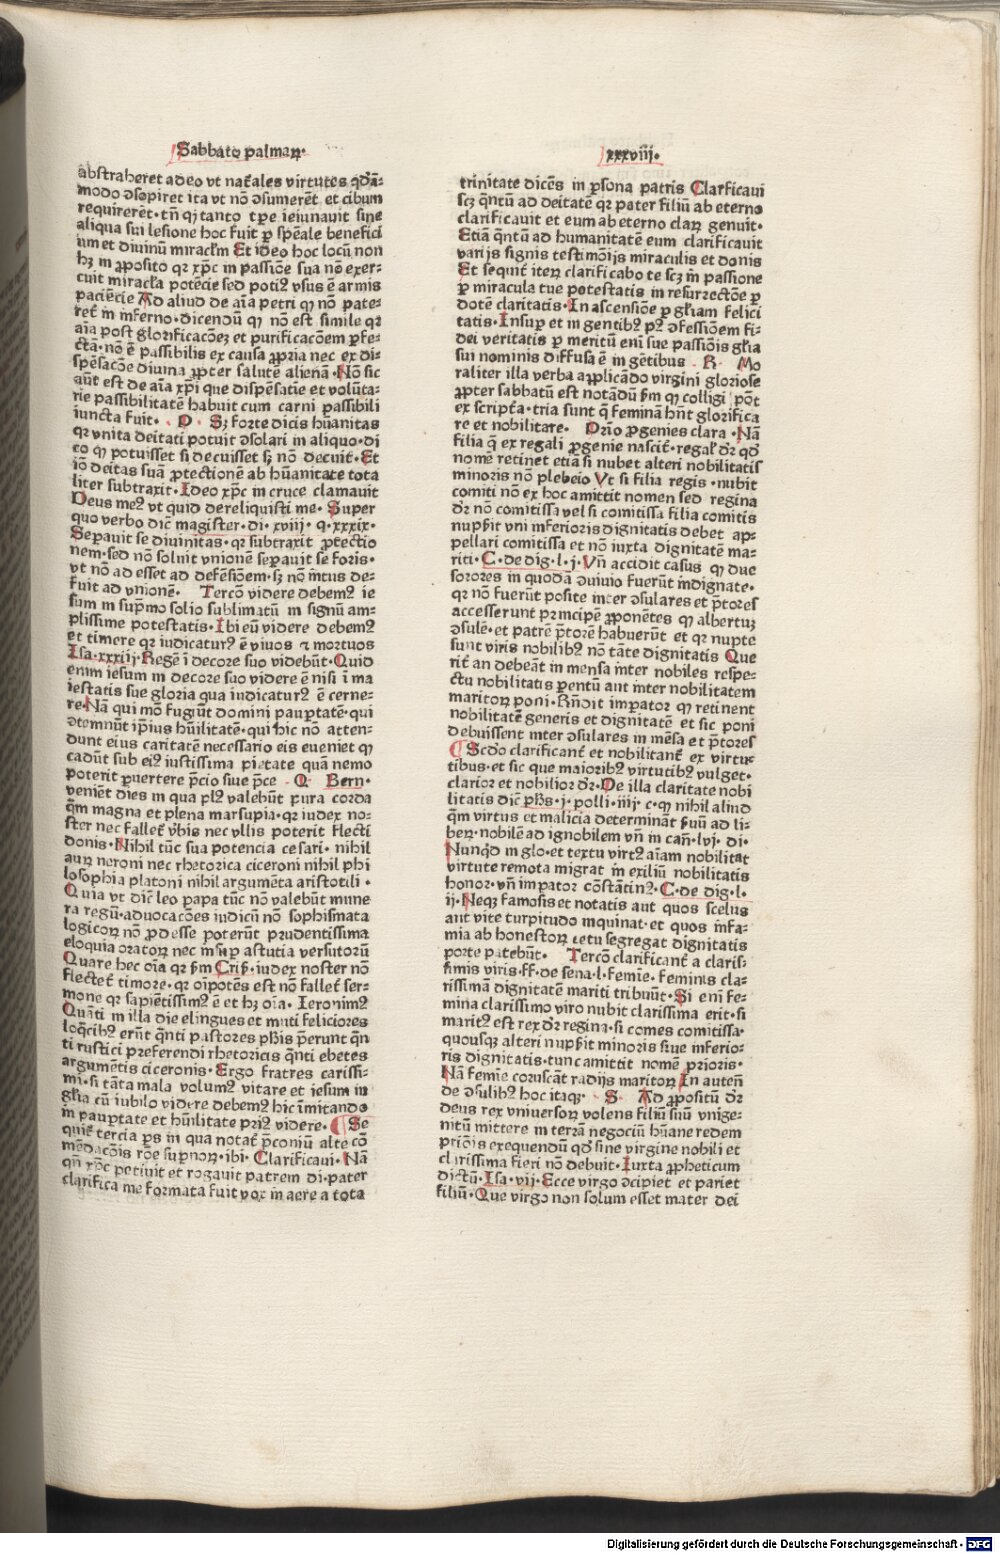 Sabbato palmaꝝ.
xxxviij.
abstraheret adeo vt nat͛ales virtutes qd̓ā⸗
modo ↄsopiret ita vt nō ↄsumerēt et cibum
requirerēt·tn̄ ꝙ tanto tꝑe ieiunauit sine
aliqua sui lesione hoc fuit ꝑ spēale benefici
um et diuinū miracl̓m Et ideo hoc locū non
hꝫ in ꝓposito qꝛ xp̄c in passiōe sua nō exer⸗
cuit miracl̓a potēcie sed poti⁹ vsus ē armis
paciēcie Ad aliud de aīa petri ꝙ nō pate⸗
ret͛ in inferno·dicendū ꝙ nō est simile qꝛ
aīa post glorificacōeꝫ et purificacōem ꝑfe⸗
ctā·nō ē passibilis ex causa ꝓpria nec ex di⸗
spēsacōe diuina ꝓpter salutē alienā·Nō sic
aūt est de aīa xp̄i que dispēsatie et volūta⸗
rie passibilitatē habuit cum carni passibili
iuncta fuit· · P · Sꝫ forte dicis hūanitas
qꝛ vnita deitati potuit ↄsolari in aliquo·di
co ꝙ potuisset si decuisset sꝫ nō decuit·Et
iō deitas suā ꝓtectionē ab hūanitate tota
liter subtraxit·Ideo xp̄c in cruce clamauit
Deus me⁹ vt quid dereliquisti me·Super
quo verbo dic̄ magister·di·xviij· q·xxxix·
Seꝑauit se diuinitas·qꝛ subtraxit ꝓtectio
nem·sed nō soluit vnionē seꝑauit se foris·
vt nō ad esset ad defēsiōem·sꝫ nō intus de⸗
fuit ad vnionē· Tercō videre debem⁹ ie
sum in supͥmo solio sublimatū in signū am⸗
plissime potestatis·Ibi eū videre debem⁹
et timere qꝛ iudicatur⁹ ē viuos ⁊ mortuos
Isa·xxxiij·Regē ī decore suo videbūt·Quid
enim iesum in decore suo videre ē nisi ī ma
iestatis sue gloria qua iudicatur⁹ ē cerne⸗
re·Nā qui mō fugiūt domini pauꝑtatē·qui
ↄtemnūt ipīus hūilitatē·qui hic nō atten⸗
dunt eius caritatē necessario eis eueniet ꝙ
cadūt sub ei⁹ iustissima pietate quā nemo
poterit ꝑuertere p̄cio siue p̄ce · Q · Bern·
veniēt dies in qua pl⁹ valebūt pura corda
qm̄ magna et plena marsupia·qꝛ iudex no⸗
ster nec fallet͛ v̓bis nec vllis poterit flecti
donis·Nihil tūc sua potencia cesari· nihil
auꝝ neroni nec rhetorica ciceroni nihil phi
losophia platoni nihil argumēta aristotili ·
Quia vt dic̄ leo papa tūc nō valebūt mune
ra regū·aduocacōes iudicū nō sophismata
logicoꝝ nō ꝓdesse poterūt prudentissima
eloquia oratoꝝ nec in sup̄ astutia versutorū
Quare hec oīa qꝛ ẜm Crisͥ·iudex noster nō
flectet͛ timore·qꝛ oīpotēs est nō fallet͛ ser⸗
mone qꝛ sapiētissim⁹ ē et hꝫ oīa· Ieronim⁹
Quāti in illa die elingues et muti feliciores
loq̄cib⁹ erūt qn̄ti pastores pħis p̄erunt qn̄
ti rustici preferendi rhetoricis qn̄ti ebetes
argumētis ciceronis·Ergo fratres carissi⸗
mi·si tāta mala volum⁹ vitare et iesum in
gl̓ia cū iubilo videre debem⁹ hic īmitando
in pauꝑtate et hūilitate pri⁹ videre·¶ Se
quit͛ tercia ꝑs in qua notat͛ p̄coniū alte cō
mēdacōis rōe supnoꝝ·ibi·Clarificaui·Nā
qn̄ xp̄c petiuit et rogauit patrem di·pater
clarifica me formata fuit vox in aere a tota
trinitate dicēs in ꝑsona patris Clarficaui
scꝫ qn̄tū ad deitatē qꝛ pater filiū ab eterno
clarificauit et eum ab eterno claꝝ genuit·
Etiā qn̄tū ad humanitatē eum clarificauit
varijs signis testimōijs miraculis et donis
Et sequit͛ iteꝝ clarificabo te scꝫ in passione
ꝑ miracula tue potestatis in resurrectōe ꝑ
dotē claritatis·In ascensiōe ꝑ gl̓iam felici
tatis·Insuꝑ et in gentib⁹ p⁹ ↄfessiōem fi⸗
dei veritatis ꝑ meritū enī sue passiōis gl̓ia
sui nominis diffusa ē in gētibus · R · Mo
raliter illa verba aꝓplicādo virgini gloriose
ꝓpter sabbatū est notādū ẜm ꝙ colligi pōt
ex script͛a·tria sunt q̄ feminā hn̄t glorifica
re et nobilitare· Prīo ꝓgenies clara ·Nā
filia q̄ ex regali ꝓgenie nascit͛·regal̓ dr̄ qd̓
nomē retinet etiā si nubet alteri nobilitatis
minoris nō plebeio Vt si filia regis ·nubit
comiti nō ex hoc amittit nomen sed regina
dr̄ nō comitissa vel si comitissa filia comitis
nupsit vni inferioris dignitatis debet ap⸗
pellari comitissa et nō iuxta dignitatē ma⸗
riti·C·de dig·l·j·Vn̄ accidit casus ꝙ due
sorores in quodā ↄuiuio fuerūt indignate·
qꝛ nō fuerūt posite inter ↄsulares et p̄tores
accesserunt principē ꝓponētes ꝙ albertuꝫ
ↄsulē·et patrē p̄torē habuerūt et qꝛ nupte
sunt viris nobilib⁹ nō tāte dignitatis Que
rit͛ an debeāt in mensa inter nobiles respe⸗
ctu nobilitatis ꝑentū aut inter nobilitatem
maritoꝝ poni·Rn̄dit imꝑator ꝙ retinent
nobilitatē generis et dignitatē et sic poni
debuissent inter ↄsulares in mēsa et p̄tores
¶ Scdo clarificant͛ et nobilitant͛ ex virtu⸗
tibus·et sic que maiorib⁹ virtutib⁹ vulget·
clarior et nobilior dr̄·De illa claritate nobi
litatis dic̄ pħs·j·polli·iiij c·ꝙ nihil aliud
qm̄ virtus et malicia determināt suū ad li⸗
beꝝ·nobilē ad ignobilem vn̄ in can̄·lvj·di·
Nunqd̓ in glo·et textu virt⁹ aīam nobilitat
virtute remota migrat in exiliū nobilitatis
honor·vn̄ imꝑator cōstātin⁹·C·de dig·l·
ij·Neqꝫ famosis et notatis aut quos scelus
aut vite turpitudo inquinat·et quos infa⸗
mia ab honestoꝝ cetu segregat dignitatis
porte patebūt· Tercō clarificant͛ a claris⸗
simis viris·ff·de sena·l·femīe·feminis cla⸗
rissimā dignitatē mariti tribuūt·Si enī fe⸗
mina clarissimo viro nubit clarissima erit·si
marit⁹ est rex dr̄ regina·si comes comitissa·
quousqꝫ alteri nupsit minoris siue inferio⸗
ris dignitatis·tunc amittit nomē prioris·
Nā femīe coruscāt radijs maritoꝝ In autēn
de ↄsulib⁹ hoc itaqꝫ· · S · Ad ꝓpositū dr̄
deus rex vniuersoꝝ volens filiū suū vnige⸗
nitū mittere in terrā negociū hūane redem
pciōis exequendū qd̓ sine virgine nobili et
clarissima fieri nō debuit·Iuxta ꝓpheticum
dictū·Isa·vij·Ecce virgo ↄcipiet et pariet
filiū·Que virgo non solum esset mater dei
Digitalisierung gefördert durch die Deutsche Forschungsgemeinschaft - DFG